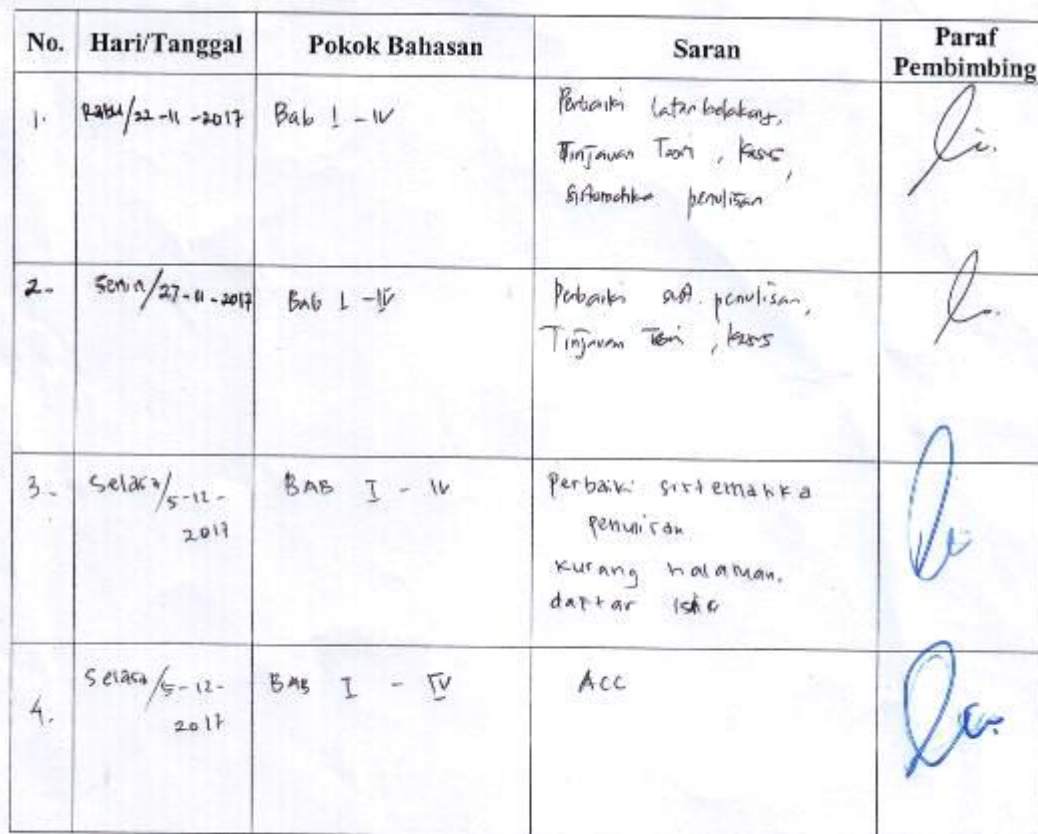 No. Hari/Tanggal Pokok Bahasan Saran Paraf Pembimbing
1. Rabu/22-11-2017 Bab I - IV Perbaiki latar belakang,
Tinjauan Teori, Kasus,
sistematika penulisan
2. Senin/27-11-2017 Bab I - IV Perbaiki penulisan,
Tinjauan Teori, Kasus
3. Selasa/5-12- BAB I - IV perbaiki sistematika
2017 penulisan
kurang halaman.
daftar
4. Selasa/5-12- BAB I - IV ACC
2017